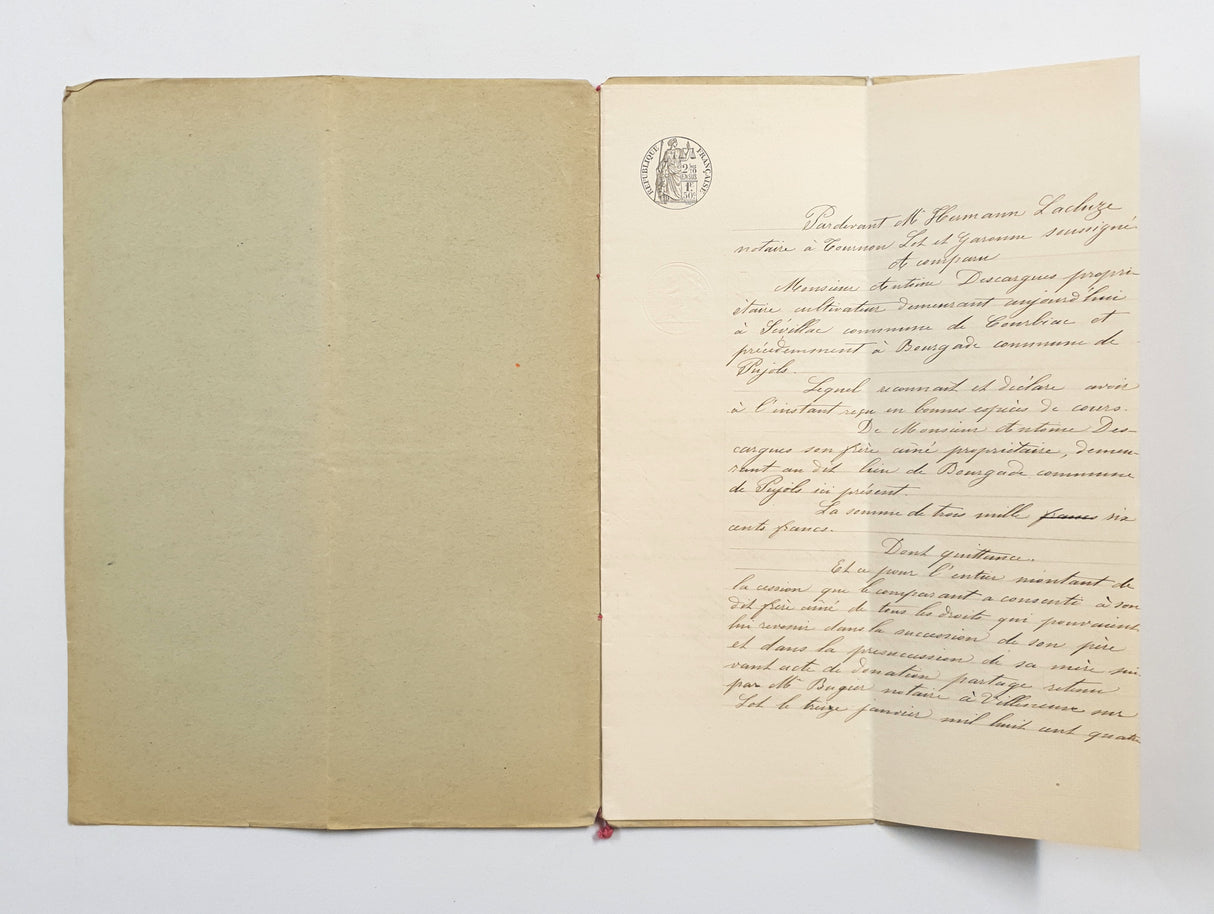 RÉPUBLIQUE FRANÇAISE
2 10es
EN SUS
1F
50c
Pardevant Me Hermann Lacluze
notaire à Tournon Lot et Garonne soussigné
A comparu
Monsieur Antoine Descargues propri-
étaire cultivateur demeurant aujourd'hui
à Sévillac commune de Courbiac et
précédemment à Bourgade commune de
Pujols.
Lequel reconnait et déclare avoir
à l'instant reçu en bonnes espèces de cours.
De Monsieur Antoine Des-
cargues son frère aîné propriétaire, demeu-
rant au dit lieu de Bourgade commune
de Pujols ici présent.
La somme de trois mille francs six
cents francs.
Dont quittance.
Et ce pour l'entier montant de
la cession que le comparant a consenti à son
dit frère aîné de tous les droits qui pouvaient
lui revenir dans la succession de son père
et dans la présuccession de sa mère sui-
vant acte de donation partage retenu
par Me notaire à Villeneuve sur
Lot le treize janvier mil huit cent quatre